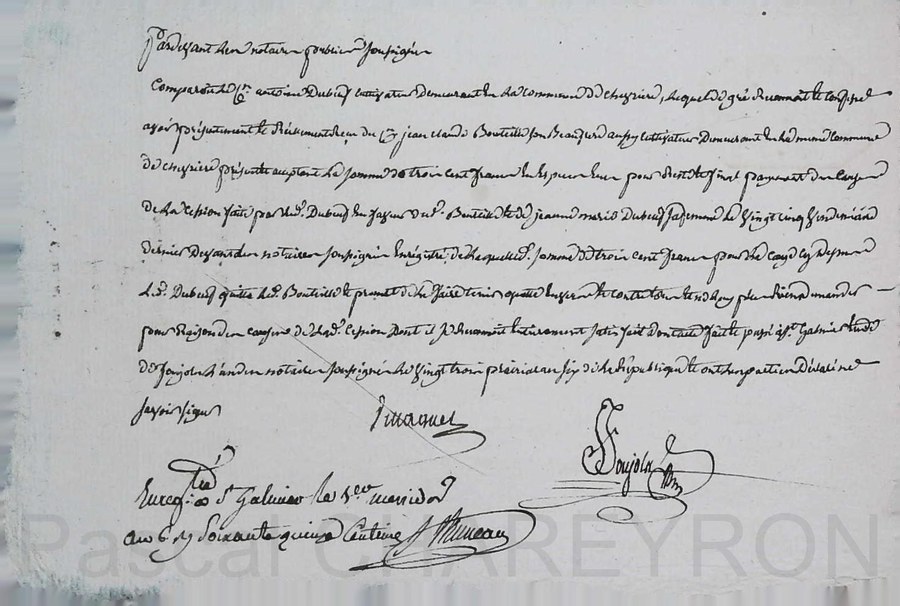 Pardevant les notaires publics soussignés
Comparoit le Cn. antoine Dubeuf cultivateur Demeurant en la commune de chevriere, lequel de gré Reconnoit et confesse
avoir présentement et Réellement Reçu du Cn. jean claude Bouteille son Beaufrere aussy cultivateur Demeurant en la meme commune
de chevriere présent et acceptant la somme de trois cent francs en Espece pour Reste et final payement du
de la Cession faite par led. Dubeuf en faveur dud. Bouteille et de jeanne marie Dubeuf sa femme le vingt cinq vendemiaire
dernier Devant les notaires soussignés Enregistré, de laquelle d. somme de trois cent francs pour
L. d. Dubeuf quitte led. Bouteille et promet de l'en faire tenir quitte envers et contre tous et ne luy plus Rien demander
pour Raison du de lad. Cession Dont il se Reconnoit entierement satisfait Dont acte fait et passé a St. Galmier etude
de foujols l'un des notaires soussignés le vingt trois prairial an six de la République et ont les parties Déclaré ne
savoir signer
foujols
Enregtré a St Galmier le messidor
an 6 R Soixante quinze Centimes Bruneau
Pascal CHAREYRON